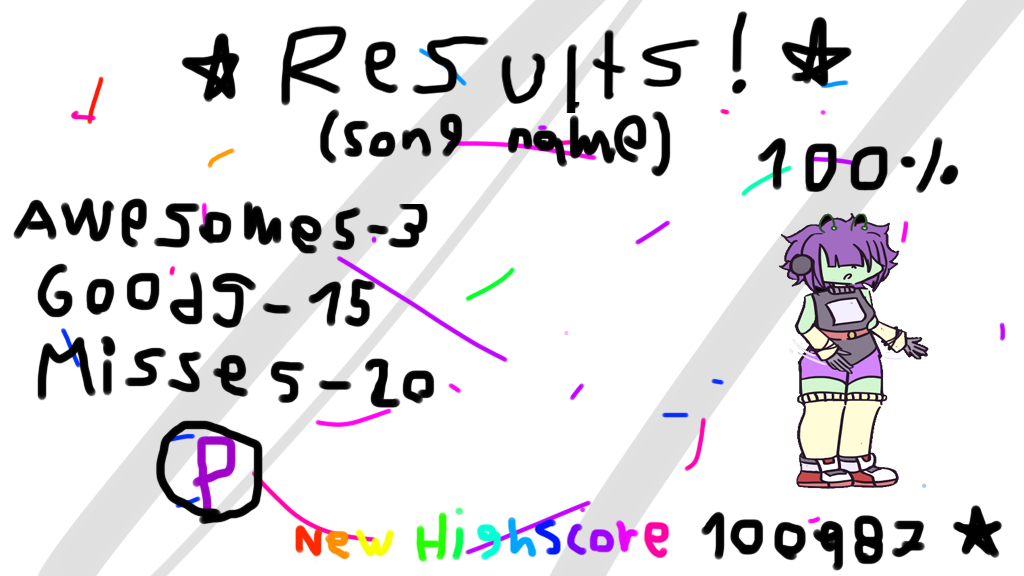 Results!
(song name)
100%
Awesomes-3
Goods-15
Misses-20
P
New Highscore 100987